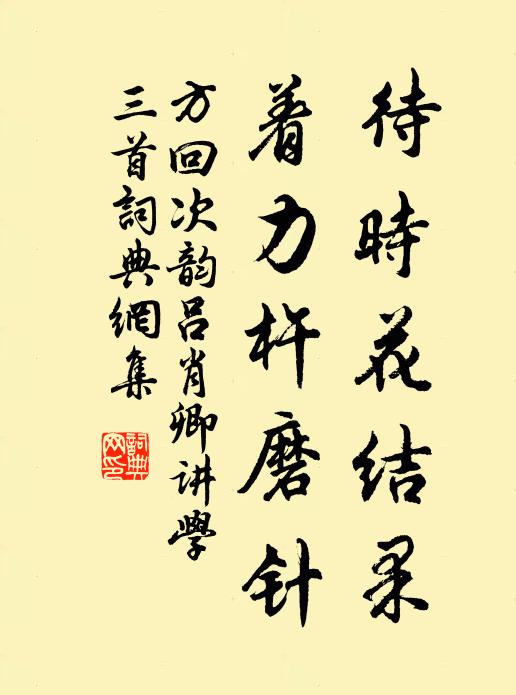 待時花结果
着力杵磨针
方回次韵吕肖卿讲學
三首詞典網集
詞典网印